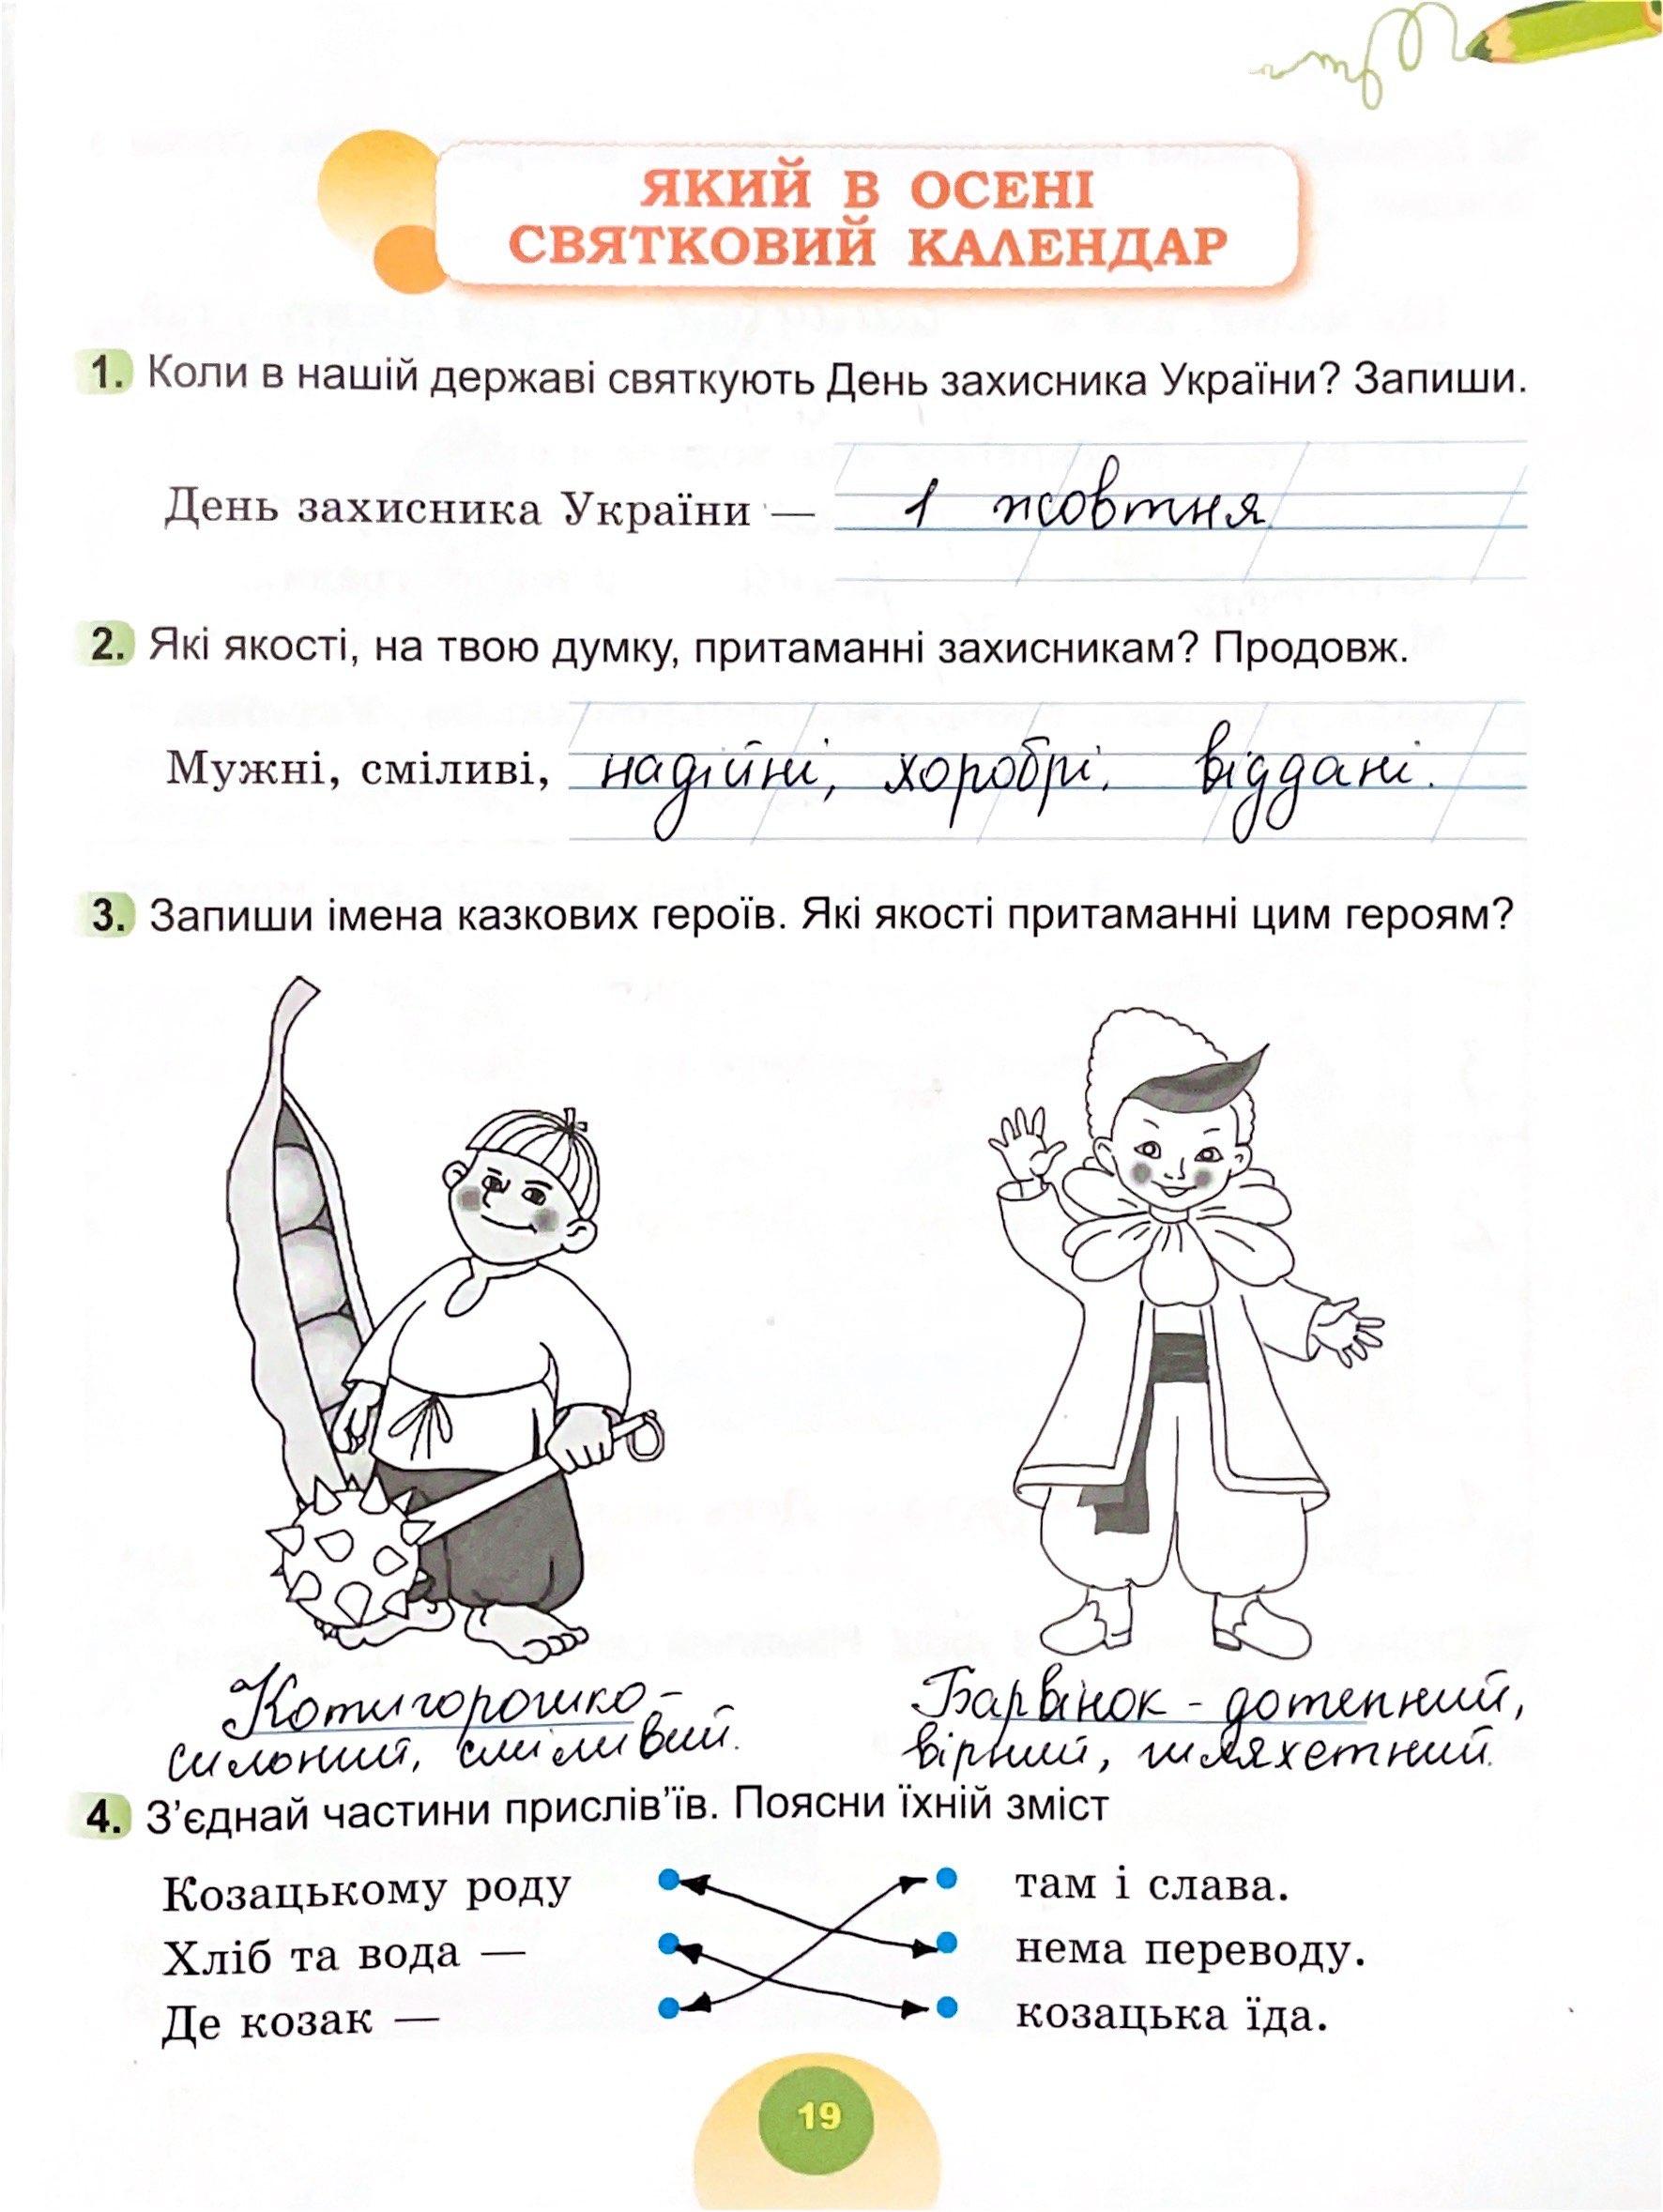 ЯКИЙ В ОСЕНІ
СВЯТКОВИЙ КАЛЕНДАР
1. Коли в нашій державі святкують День захисника України? Запиши.
День захисника України — 1 жовтня
2. Які якості, на твою думку, притаманні захисникам? Продовж.
Мужні, сміливі, надійні, хоробрі, віддані.
3. Запиши імена казкових героїв. Які якості притаманні цим героям?
Котигорошко - Барвінок - дотепний,
сильний, сміливий. вірний, шляхетний.
4. З’єднай частини прислів’їв. Поясни їхній зміст
Козацькому роду там і слава.
Хліб та вода — нема переводу.
Де козак — козацька їда.
19